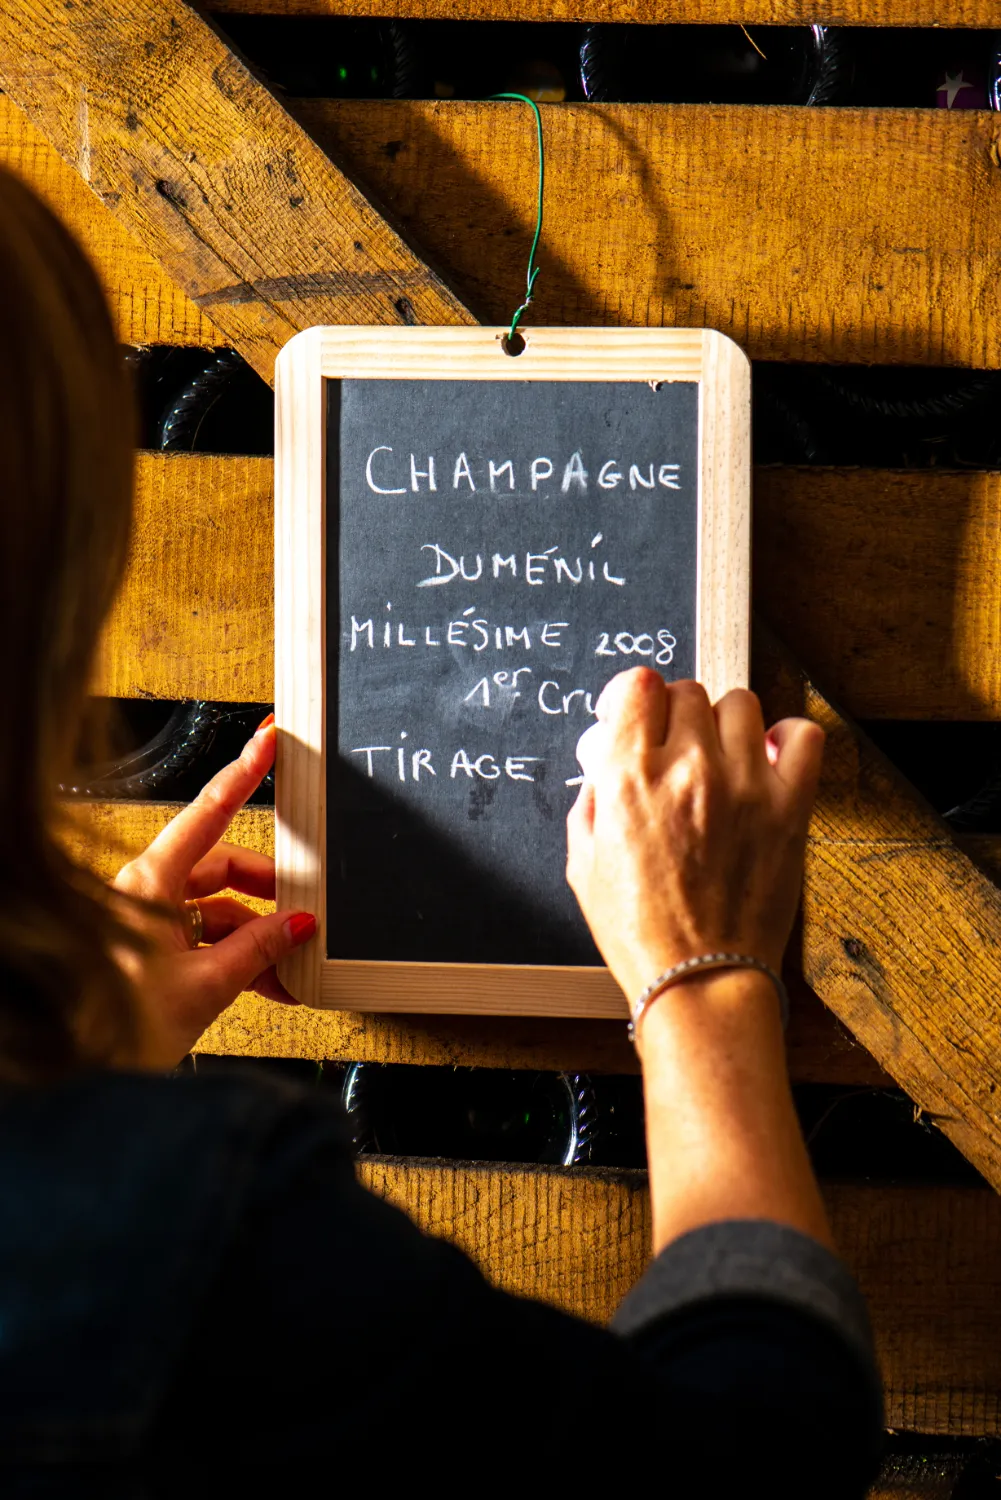 CHAMPAGNE
DUMÉNIL
MILLÉSIME 2008
1er Cru
TIRAGE